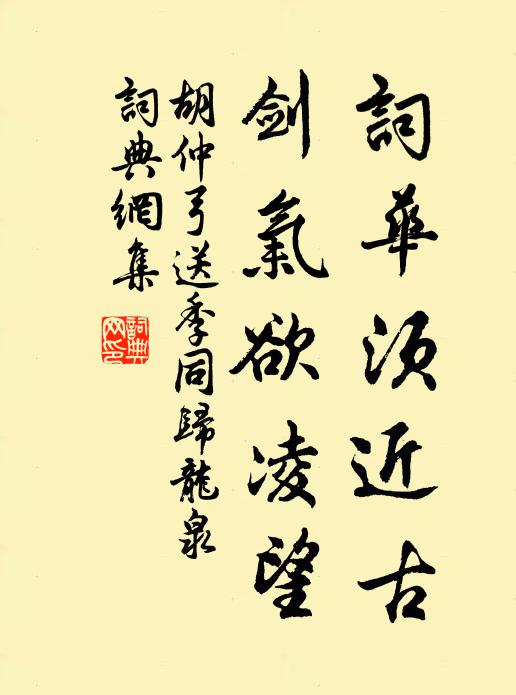 詞華須近古
劍氣欲凌望
胡仲弓送季同歸龍泉
詞典網集
詞典
网印